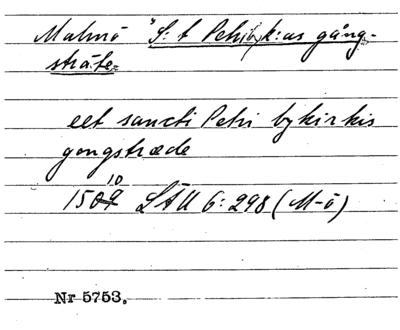 Malmö "S:t Petri byk:as gång-
sträte
eet sancti Petri bykirkis
gongstræde
10
1509 LÄU 6:298 (M-ö)
Nr 5753.